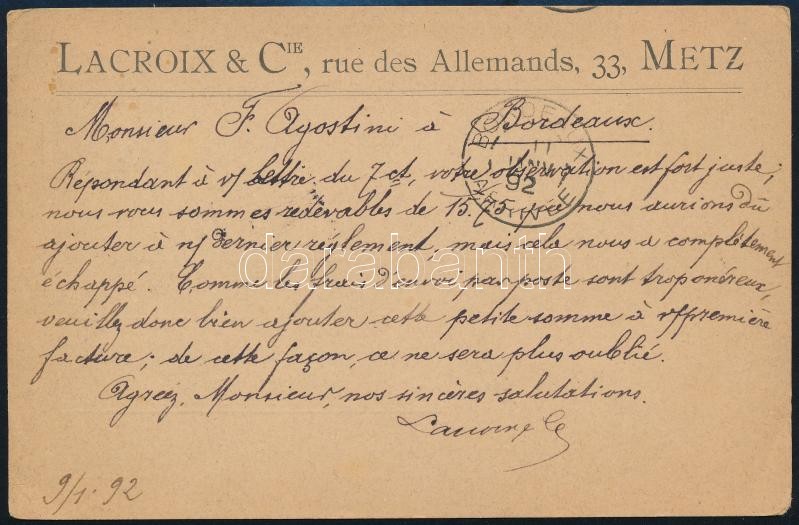 LACROIX & CIE, rue des Allemands, 33, METZ
Monsieur F. Agostini à Bordeaux.
BORDEAUX
11
JANV
92
Répondant à v/ lettre du 7 ct, votre observation est fort juste;
nous vous sommes redevables de 15. que nous aurions dû
ajouter à n/ dernier règlement, mais cela nous a complètement
échappé. Comme les frais d'envoi par poste sont trop onéreux,
veuillez donc bien ajouter cette petite somme à v/ première
facture; de cette façon, ce ne sera plus oublié.
Agréez, Monsieur, nos sincères salutations.
9/1. 92
darabanth